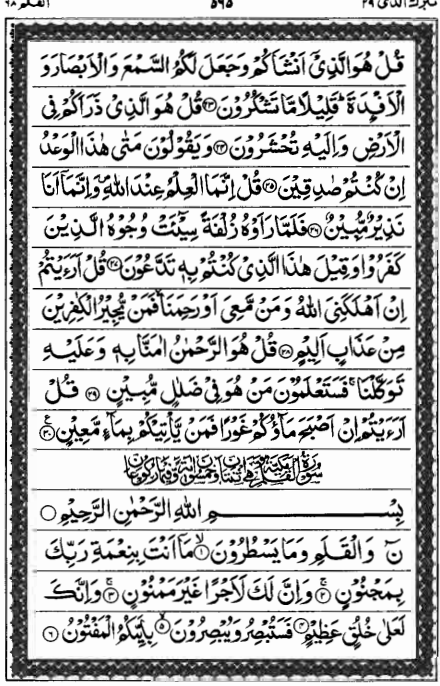 تبٰرك الذی ٢٩ ٥٦٥ القلم ٦٨
قُلْ هُوَ الَّذِىْٓ اَنْشَاَكُمْ وَجَعَلَ لَكُمُ السَّمْعَ وَالْاَبْصَارَ وَ
الْاَفْـِٕدَةَ ؕ قَلِيْلًا مَّا تَشْكُرُوْنَ ﴿٢٣﴾ قُلْ هُوَ الَّذِىْ ذَرَاَكُمْ فِى
الْاَرْضِ وَاِلَيْهِ تُحْشَرُوْنَ ﴿٢٤﴾ وَيَقُوْلُوْنَ مَتٰى هٰذَا الْوَعْدُ
اِنْ كُنْتُمْ صٰدِقِيْنَ ﴿٢٥﴾ قُلْ اِنَّمَا الْعِلْمُ عِنْدَ اللّٰهِ ۪ وَاِنَّمَاۤ اَنَا
نَذِيْرٌ مُّبِيْنٌ ﴿٢٦﴾ فَلَمَّا رَاَوْهُ زُلْفَةً سِيْٓـَٔتْ وُجُوْهُ الَّذِيْنَ
كَفَرُوْا وَقِيْلَ هٰذَا الَّذِىْ كُنْتُمْ بِهٖ تَدَّعُوْنَ ﴿٢٧﴾ قُلْ اَرَءَيْتُمْ
اِنْ اَهْلَكَنِىَ اللّٰهُ وَمَنْ مَّعِىَ اَوْ رَحِمَنَا ۙ فَمَنْ يُّجِيْرُ الْكٰفِرِيْنَ
مِنْ عَذَابٍ اَلِيْمٍ ﴿٢٨﴾ قُلْ هُوَ الرَّحْمٰنُ اٰمَنَّا بِهٖ وَعَلَيْهِ
تَوَكَّلْنَا ۚ فَسَتَعْلَمُوْنَ مَنْ هُوَ فِىْ ضَلٰلٍ مُّبِيْنٍ ﴿٢٩﴾ قُلْ
اَرَءَيْتُمْ اِنْ اَصْبَحَ مَآؤُكُمْ غَوْرًا فَمَنْ يَّاْتِيْكُمْ بِمَآءٍ مَّعِيْنٍ ﴿٣٠﴾
سورة القلم مكية وهى اثنتان وخمسون اية وفيها ركوعان
بِسْمِ اللّٰهِ الرَّحْمٰنِ الرَّحِيْمِ
نٓ وَالْقَلَمِ وَمَا يَسْطُرُوْنَ ۙ﴿١﴾ مَاۤ اَنْتَ بِنِعْمَةِ رَبِّكَ
بِمَجْنُوْنٍ ۚ﴿٢﴾ وَاِنَّ لَكَ لَاَجْرًا غَيْرَ مَمْنُوْنٍ ۚ﴿٣﴾ وَاِنَّكَ
لَعَلٰى خُلُقٍ عَظِيْمٍ ﴿٤﴾ فَسَتُبْصِرُ وَيُبْصِرُوْنَ ۙ﴿٥﴾ بِاَيِّكُمُ الْمَفْتُوْنُ ﴿٦﴾